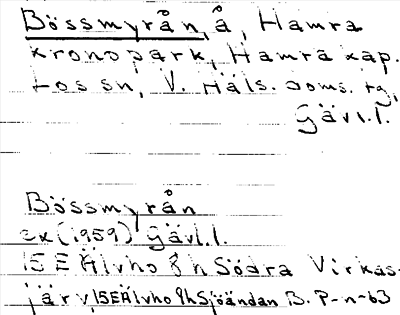 Bössmyrån, å, Hamra
kronopark, Hamra kap.
Los sn, V. Häls. doms. tg,
Gävl.l.
Bössmyrån
ek (1959) Gävl.l.
15E Älvho 8h Södra Virkas-
järv, 15E Älvho 9h Sjöändan B. P-n-63